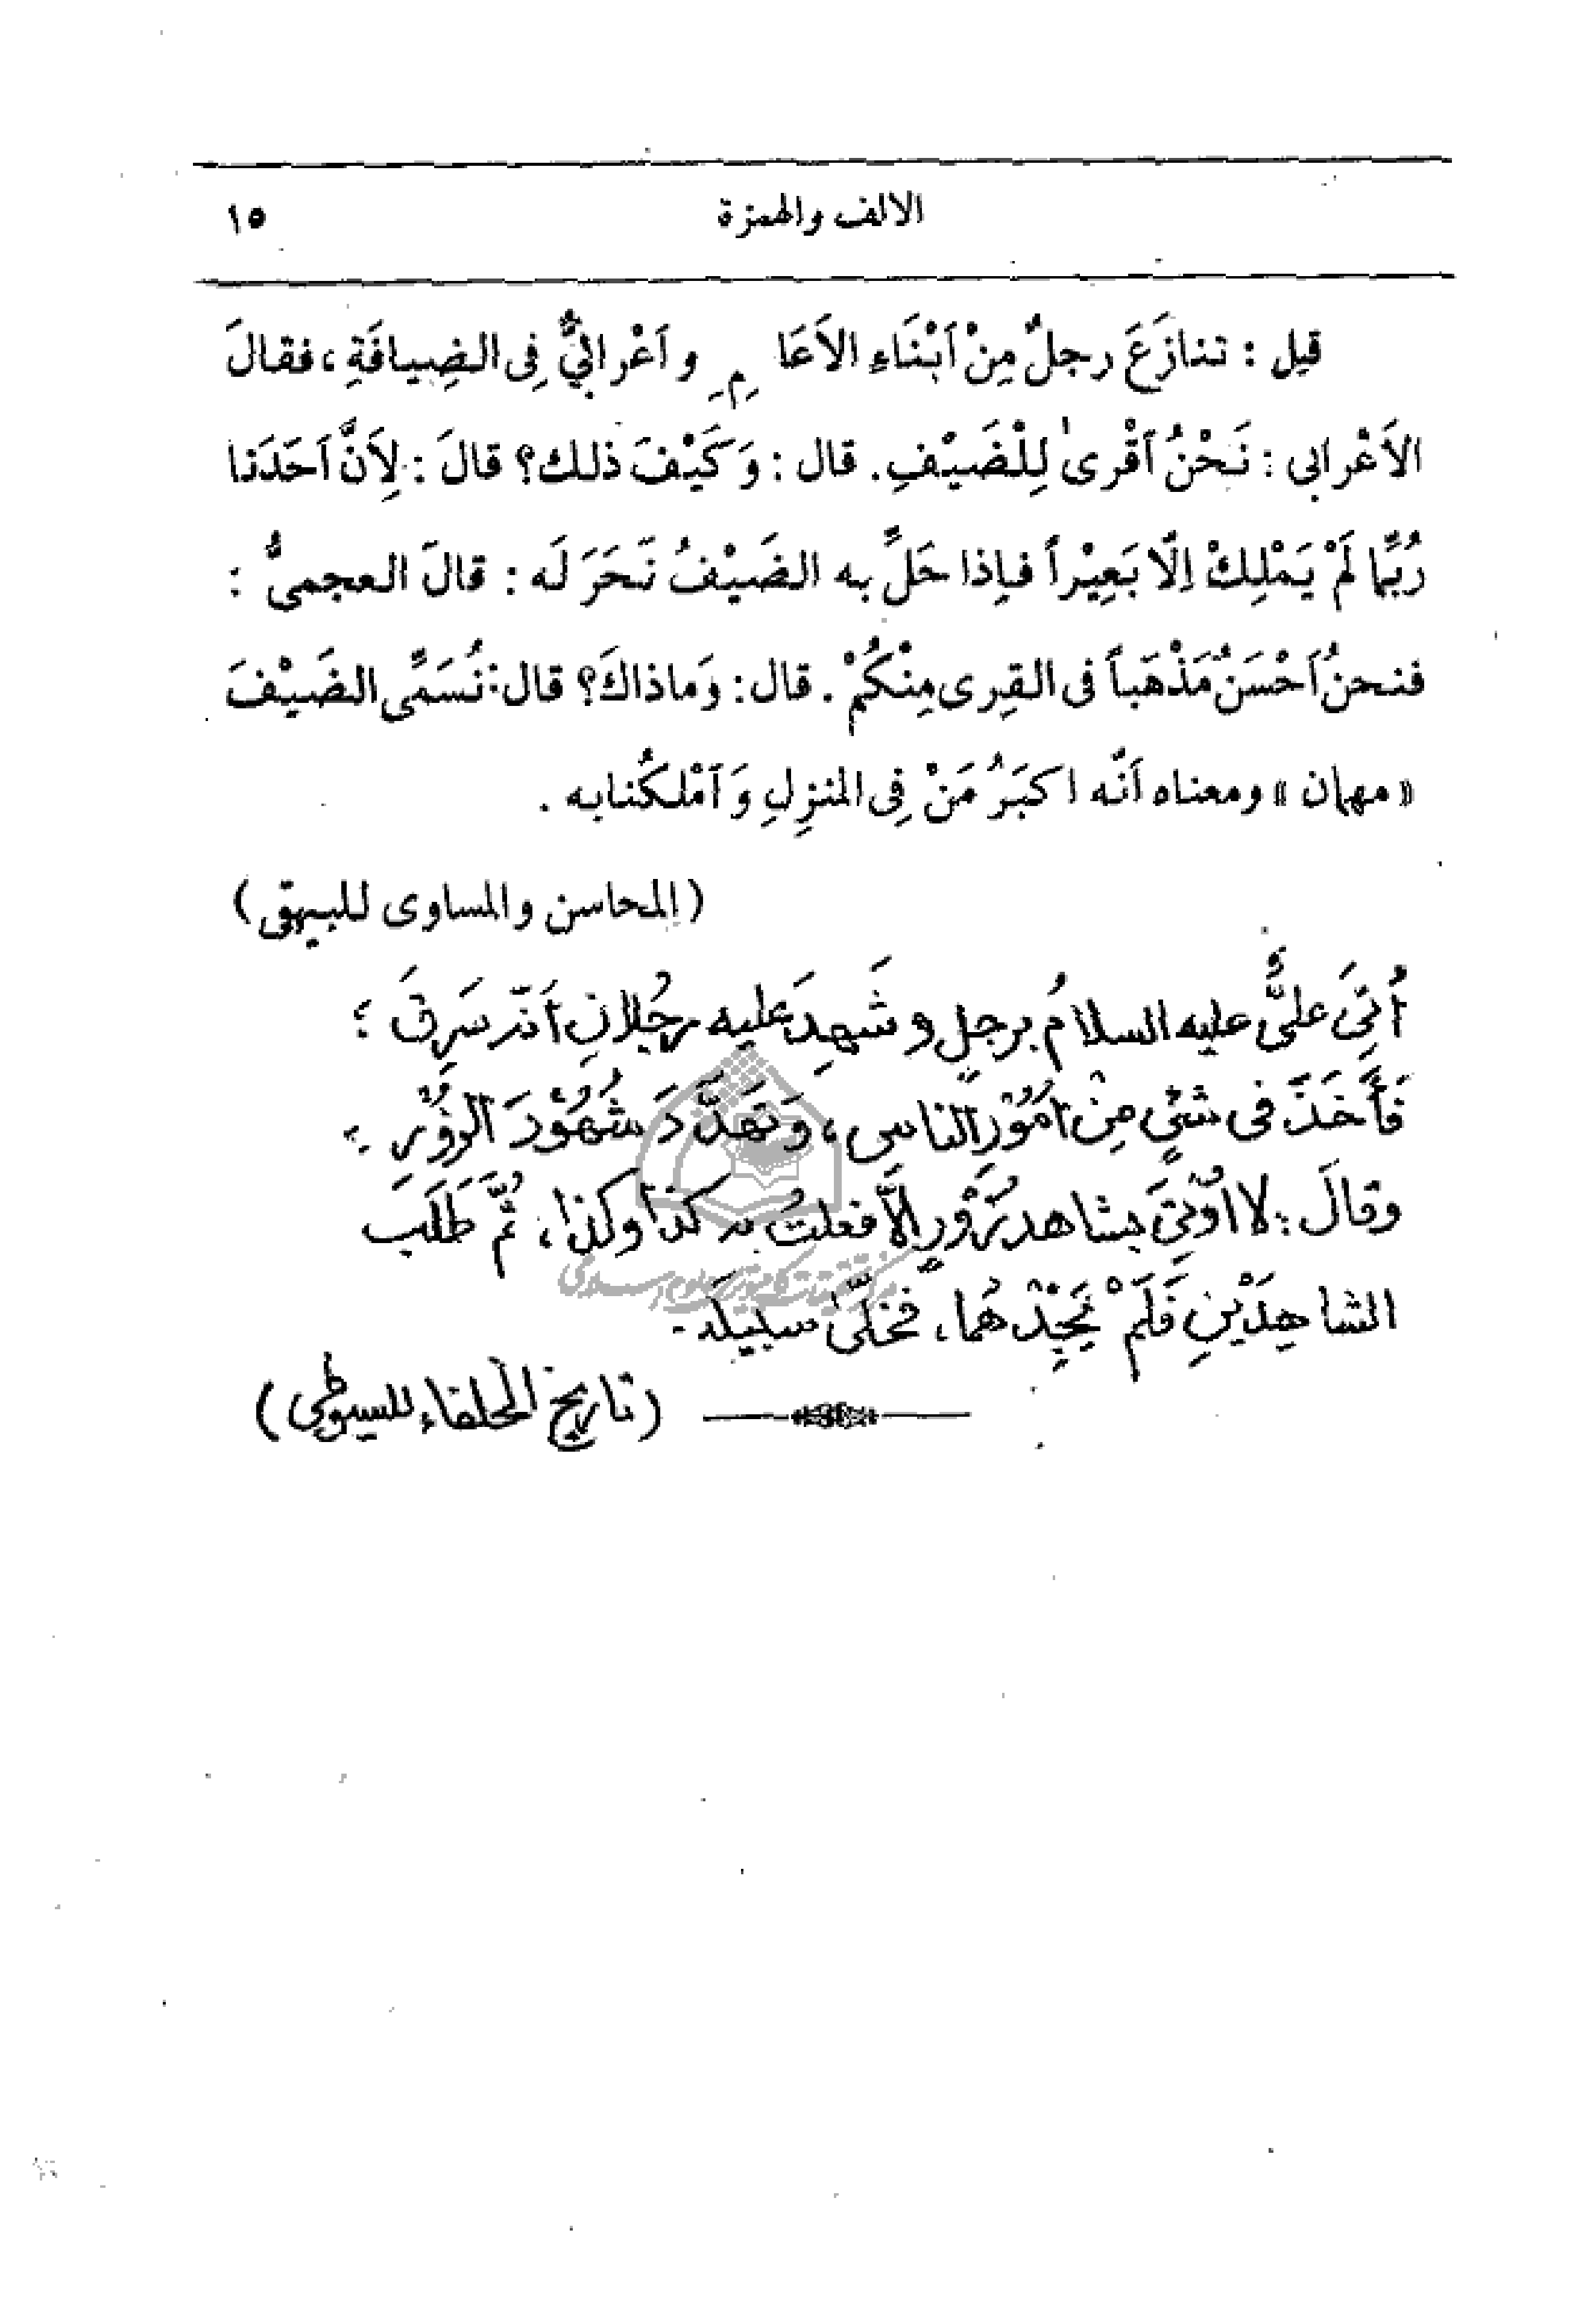 الالف والهمزة ١٥
قيل : تنازَعَ رجلٌ مِنْ أَبْنَاءِ الأَعَا مِ و أَعْرابيٌّ فِى الضِيافَةِ ، فقالَ
الأَعْرابى : نَحْنُ أَقْرىٰ لِلْضَيْفِ. قال : وَكَيْفَ ذلك؟ قالَ : لِأَنَّ أَحَدَنا
رُبَّما لَمْ يَمْلِكْ إلّا بَعِيْراً فإِذا حَلَّ به الضَيْفُ نَحَرَ لَه : قالَ العجمىُّ :
فنحنُ أَحْسَنُ مَذْهَباً فى القِرى مِنْكُمْ . قال: وَماذاكَ؟ قال: نُسَمِّى الضَيْفَ
« مهمان » ومعناه أَنّه اكبَرُ مَنْ فِى المنزِلِ وَأَمْلكُنا به .
(المحاسن والمساوى للبيهقى)
أُتِىَ علىٌّ عليه السلامُ برجلٍ و شَهِدَ عليه رجُلانِ أَنّه سَرِقَ ؛
فَأَخَذَ فى شَئٍ مِنْ أُمُوْرِ الناسِ ، وَتَهَدَّدَ شُهُوْدَ الزُّوْرِ ،
وقالَ : لا اُوْتىَ بشاهد زُوْرٍ إلَّا فعلتُ به كذا وكذا ، ثُمَّ طَلَبَ
الشاهِدَيْنِ فَلَمْ يَجِدْهُما ، فخلّىٰ سبيلَه .
(تاريخ الخلفاء للسيوطى)